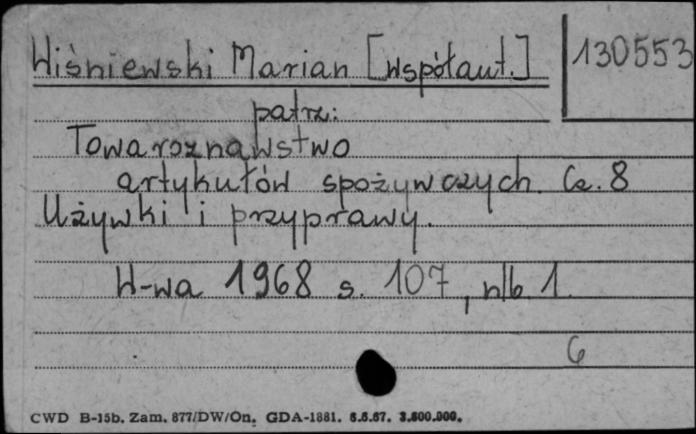 Wiśniewski Marian [współaut.]
130553
patrz:
Towaroznawstwo
artykułów spożywczych. Cz. 8
Używki i przyprawy.
W-wa 1968 s. 107, nlb 1.
6
CWD B-15b. Zam. 877/DW/On. GDA-1881. 6.6.67. 3.800.000.